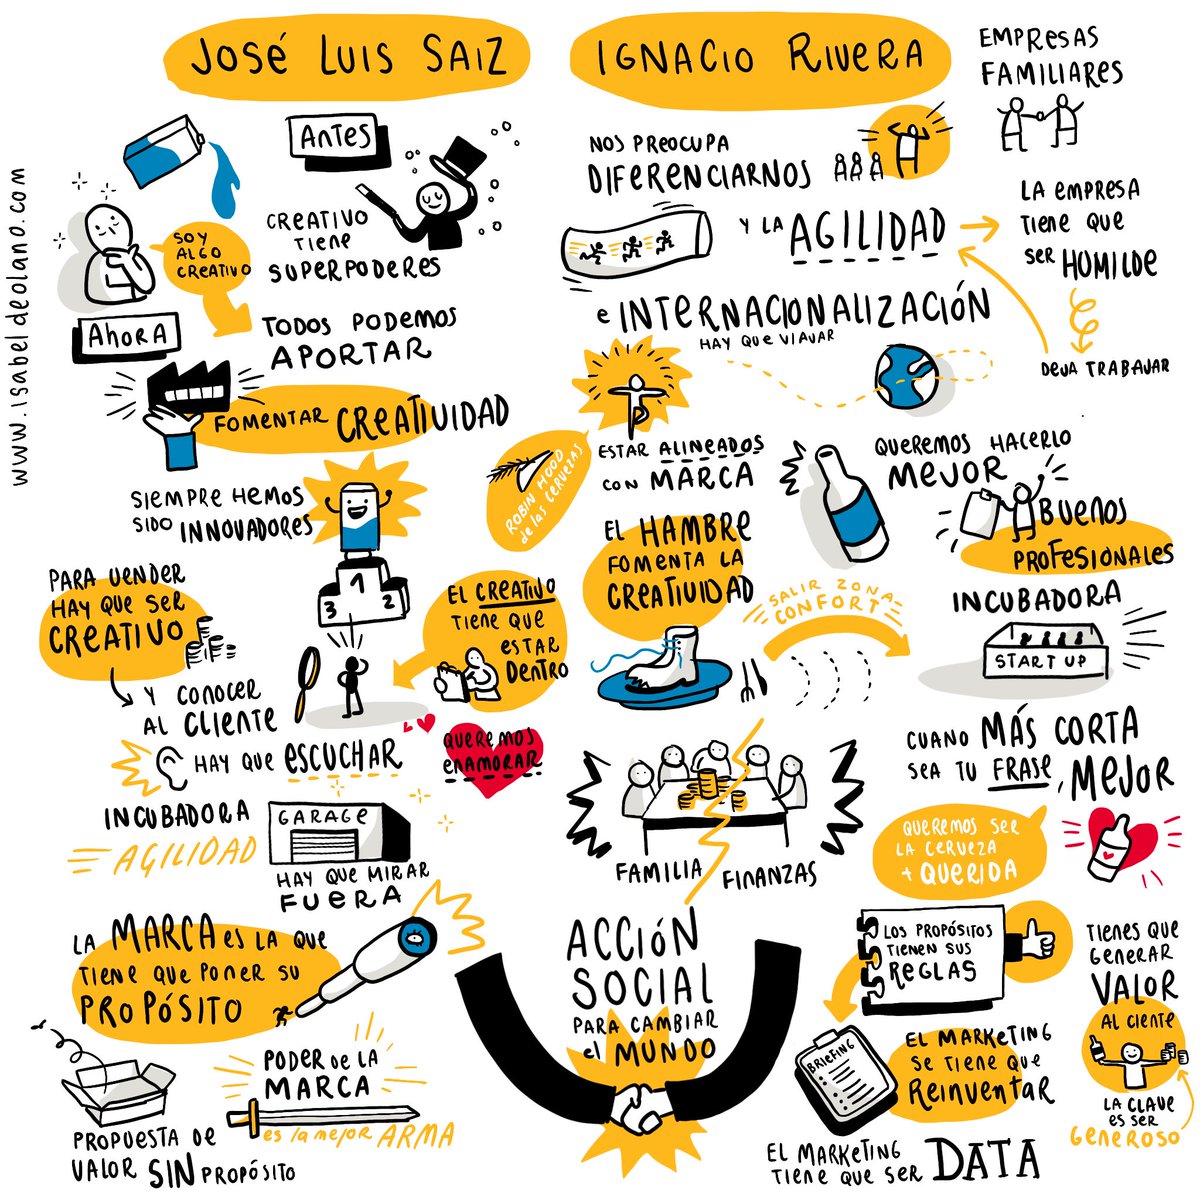 www.isabeldeolano.com
JOSÉ LUIS SAIZ
ANTES
CREATIVO
TIENE
SUPERPODERES
SOY
ALGO
CREATIVO
Ahora
TODOS PODEMOS
APORTAR
FOMENTAR CREATIVIDAD
SIEMPRE HEMOS
SIDO INNOVADORES
1
3 2
PARA VENDER
HAY QUE SER
CREATIVO
Y CONOCER
AL CLIENTE
EL CREATIVO
TIENE QUE
ESTAR
DENTRO
HAY QUE ESCUCHAR
QUEREMOS
ENAMORAR
INCUBADORA
AGILIDAD
GARAGE
HAY QUE MIRAR
FUERA
LA MARCA es LA QUE
TIENE QUE PONER SU
PROPÓSITO
PROPUESTA DE
VALOR SIN PROPÓSITO
PODER DE LA
MARCA
es la mejor ARMA
IGNACIO RIVERA
EMPRESAS
FAMILIARES
NOS PREOCUPA
DIFERENCIARNOS
Y LA AGILIDAD
LA EMPRESA
TIENE QUE
SER HUMILDE
DEJA TRABAJAR
e INTERNACIONALIZACIÓN
HAY QUE VIAJAR
ESTAR ALINEADOS
CON MARCA
ROBIN HOOD
de las CERVEZAS
QUEREMOS HACERLO
MEJOR
BUENOS
PROFESIONALES
EL HAMBRE
FOMENTA LA
CREATIVIDAD
SALIR ZONA
CONFORT
INCUBADORA
START UP
FAMILIA
FINANZAS
CUANO MÁS CORTA
SEA TU FRASE, MEJOR
QUEREMOS SER
LA CERVEZA
+ QUERIDA
LOS PROPÓSITOS
TIENEN SUS
REGLAS
TIENES QUE
GENERAR
VALOR
AL CIENTE
LA CLAVE
ES SER
GENEROSO
ACCIÓN
SOCIAL
PARA CAMBIAR
el MUNDO
BRIEFING
EL MARKETING
SE TIENE QUE
REINVENTAR
EL MARKETING
TIENE QUE SER DATA